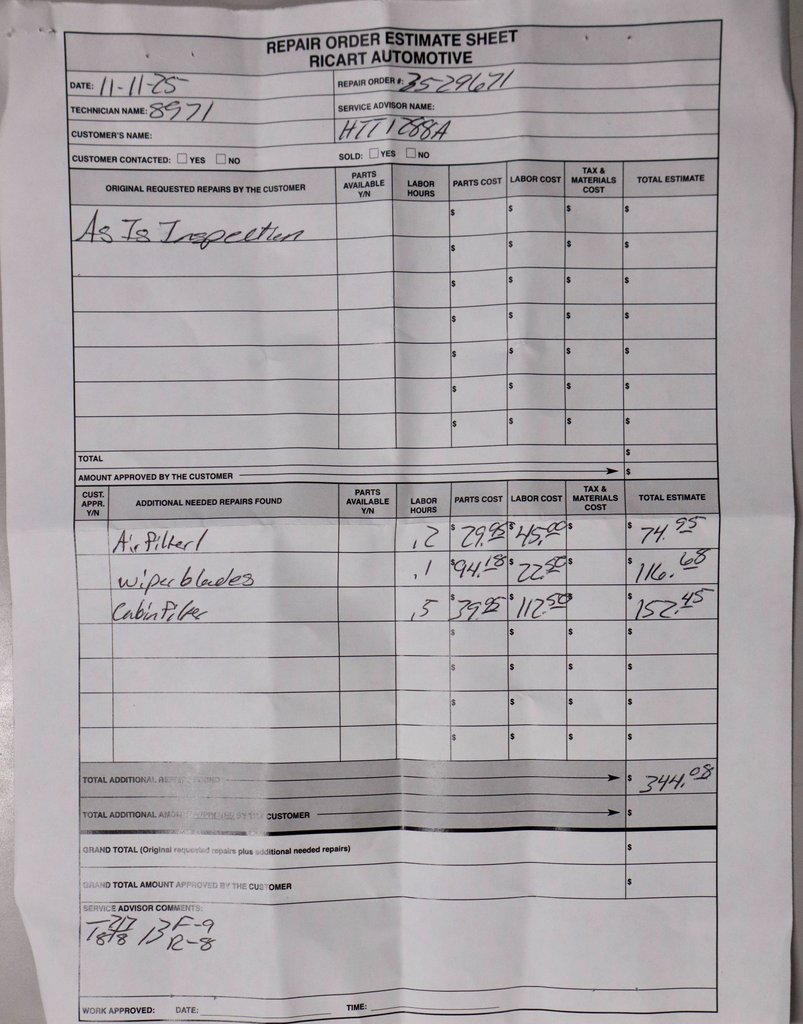 REPAIR ORDER ESTIMATE SHEET
RICART AUTOMOTIVE
DATE: 11-11-25 REPAIR ORDER #: 35-29671
TECHNICIAN NAME: 8971 SERVICE ADVISOR NAME:
CUSTOMER'S NAME: HTT1288A
CUSTOMER CONTACTED: ☐ YES ☐ NO SOLD: ☐ YES ☐ NO
ORIGINAL REQUESTED REPAIRS BY THE CUSTOMER PARTS AVAILABLE Y/N LABOR HOURS PARTS COST LABOR COST TAX & MATERIALS COST TOTAL ESTIMATE
$ $ $ $
As Is Inspection
$ $ $ $
$ $ $ $
$ $ $ $
$ $ $ $
$ $ $ $
$ $ $ $
TOTAL $
AMOUNT APPROVED BY THE CUSTOMER $
CUST. APPR. Y/N ADDITIONAL NEEDED REPAIRS FOUND PARTS AVAILABLE Y/N LABOR HOURS PARTS COST LABOR COST TAX & MATERIALS COST TOTAL ESTIMATE
Air Filter .2 $29.95 $45.00 $ $74.95
wiper blades .1 $94.18 $22.50 $ $116.68
Cabin Filter .5 $39.95 $112.50 $ $152.45
$ $ $ $
$ $ $ $
$ $ $ $
$ $ $ $
TOTAL ADDITIONAL REPAIRS FOUND $344.08
TOTAL ADDITIONAL AMOUNT APPROVED BY THE CUSTOMER $
GRAND TOTAL (Original requested repairs plus additional needed repairs) $
GRAND TOTAL AMOUNT APPROVED BY THE CUSTOMER $
SERVICE ADVISOR COMMENTS:
F-9
R-8
WORK APPROVED: DATE: TIME: